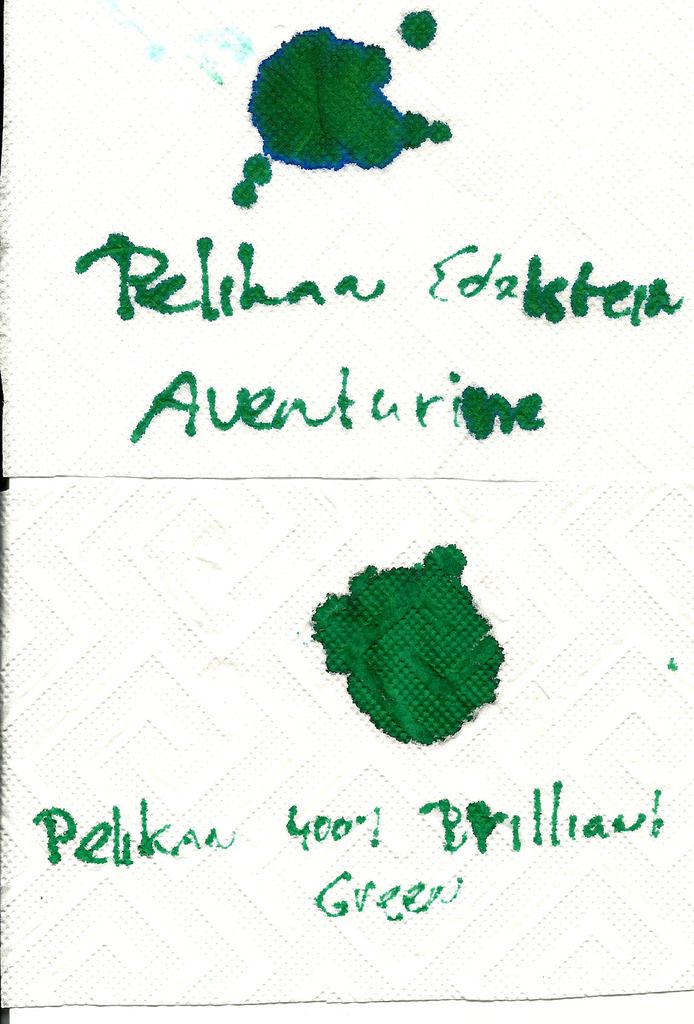 Pelikan Edelstein
Aventurine
Pelikan 4001 Brilliant
Green